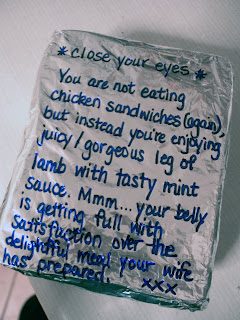 * close your eyes *
You are not eating
chicken sandwiches (again),
but instead you're enjoying
juicy/gorgeous leg of
lamb with tasty mint
sauce. Mmm... your belly
is getting full with
satisfaction over the
delightful meal your wife
has prepared. xxx